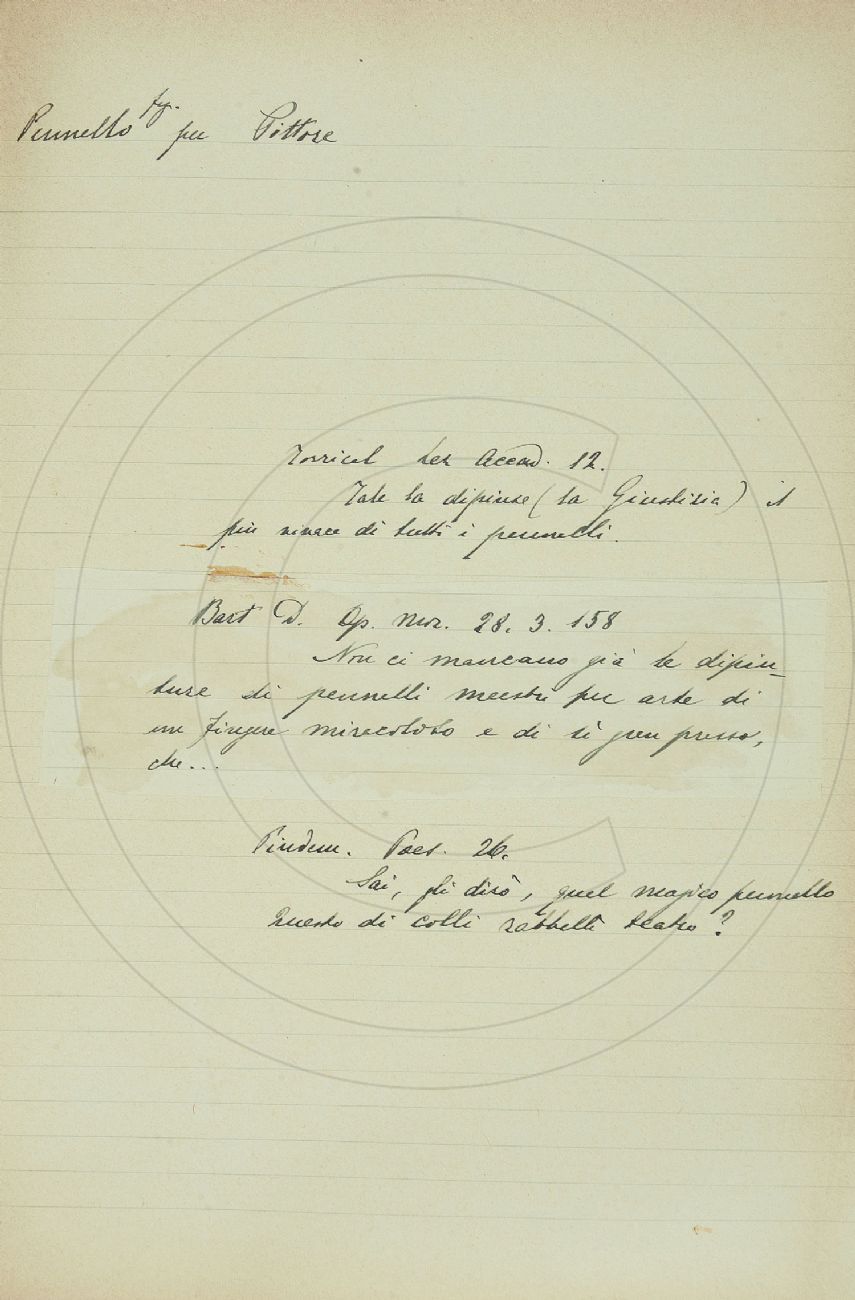 Pennello fig. per Pittore
Torricel Lez Accad. 12.
Tale la dipinse (la Giustizia) il
più vivace di tutti i pennelli.
Bart D. Op. Mor. 28. 3. 158
Non ci mancano già le dipin-
ture di pennelli maestri per arte di
un fingere miracoloso e di sì gran prezzo,
che...
Pindem. Poes. 26.
Sai, gli dirò, qual magico pennello
Questo di colli rabbellì teatro?